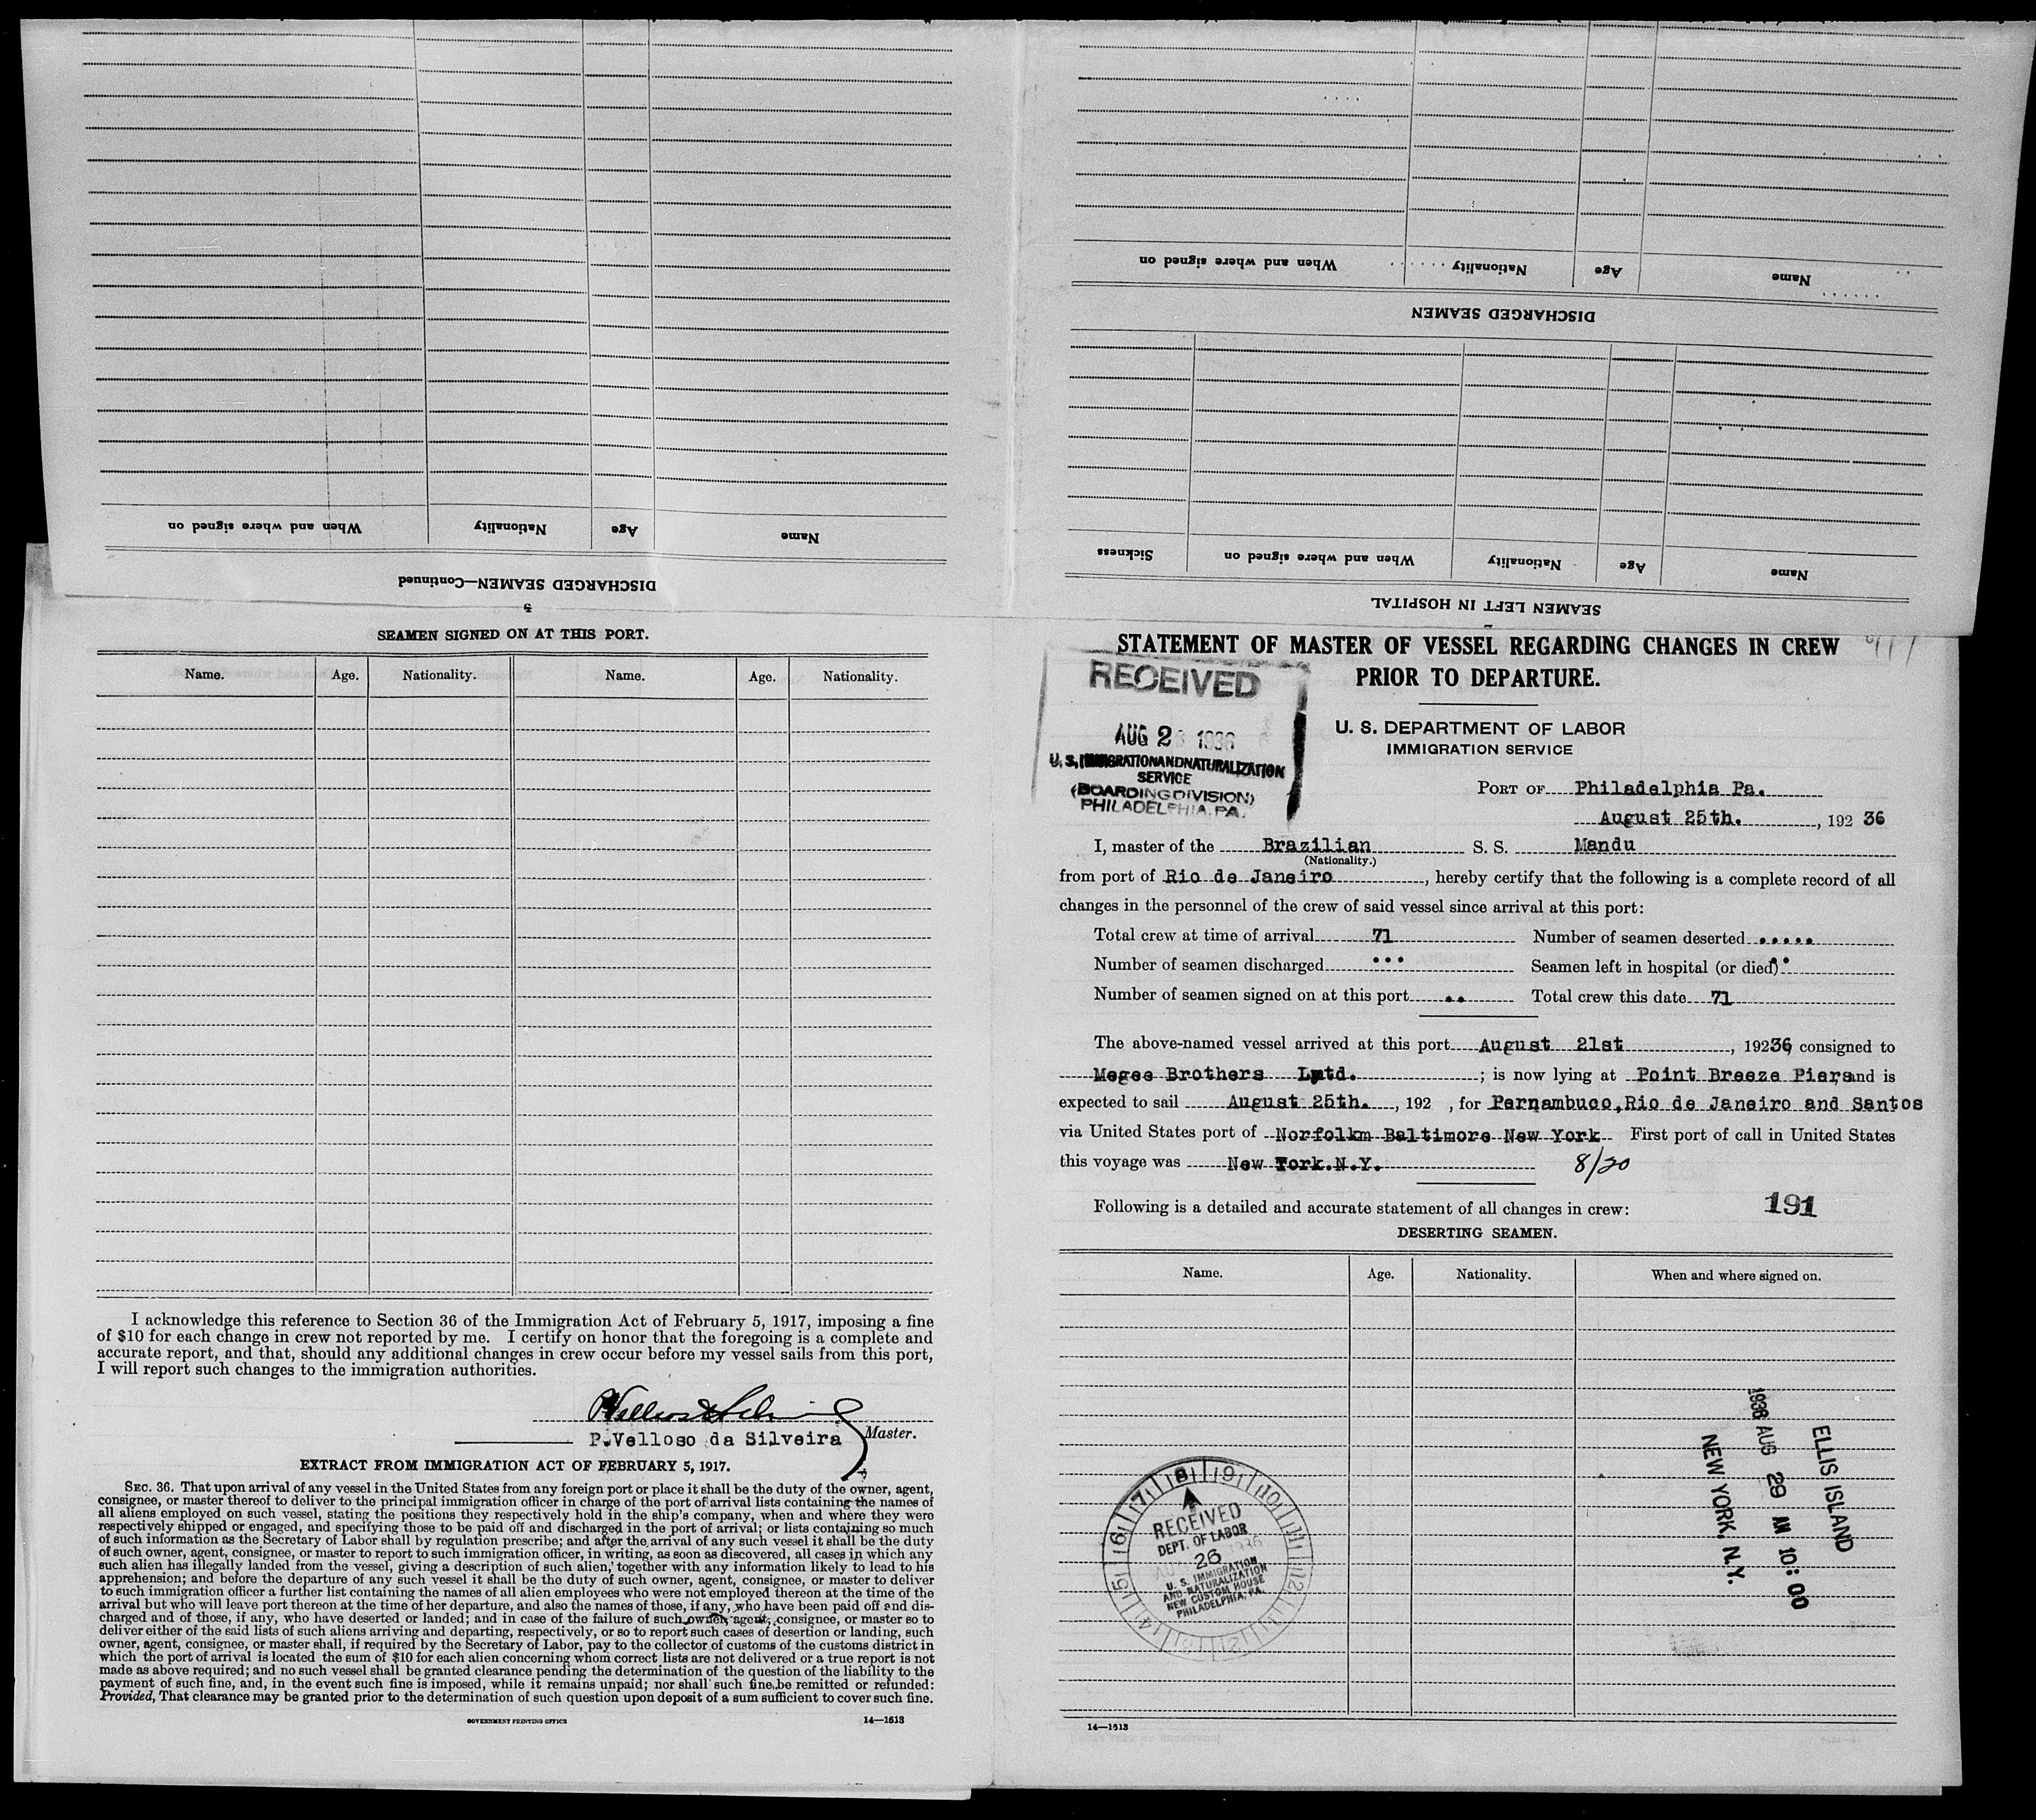 When and where signed on
Nationality
Age
Name
DISCHARGED SEAMEN—Continued
3
When and where signed on
Nationality
Age
Name
DISCHARGED SEAMEN
Sickness
When and where signed on
Nationality
Age
Name
SEAMEN LEFT IN HOSPITAL
2
SEAMEN SIGNED ON AT THIS PORT.
Name. Age. Nationality. Name. Age. Nationality.
I acknowledge this reference to Section 36 of the Immigration Act of February 5, 1917, imposing a fine
of $10 for each change in crew not reported by me. I certify on honor that the foregoing is a complete and
accurate report, and that, should any additional changes in crew occur before my vessel sails from this port,
I will report such changes to the immigration authorities.
P.Velloso da Silveira Master.
EXTRACT FROM IMMIGRATION ACT OF FEBRUARY 5, 1917.
SEC. 36. That upon arrival of any vessel in the United States from any foreign port or place it shall be the duty of the owner, agent,
consignee, or master thereof to deliver to the principal immigration officer in charge of the port of arrival lists containing the names of
all aliens employed on such vessel, stating the positions they respectively hold in the ship's company, when and where they were
respectively shipped or engaged, and specifying those to be paid off and discharged in the port of arrival; or lists containing so much
of such information as the Secretary of Labor shall by regulation prescribe; and after the arrival of any such vessel it shall be the duty
of such owner, agent, consignee, or master to report to such immigration officer, in writing, as soon as discovered, all cases in which any
such alien has illegally landed from the vessel, giving a description of such alien, together with any information likely to lead to his
apprehension; and before the departure of any such vessel it shall be the duty of such owner, agent, consignee, or master to deliver
to such immigration officer a further list containing the names of all alien employees who were not employed thereon at the time of the
arrival but who will leave port thereon at the time of her departure, and also the names of those, if any, who have been paid off and dis-
charged and of those, if any, who have deserted or landed; and in case of the failure of such owner, agent, consignee, or master so to
deliver either of the said lists of such aliens arriving and departing, respectively, or so to report such cases of desertion or landing, such
owner, agent, consignee, or master shall, if required by the Secretary of Labor, pay to the collector of customs of the customs district in
which the port of arrival is located the sum of $10 for each alien concerning whom correct lists are not delivered or a true report is not
made as above required; and no such vessel shall be granted clearance pending the determination of the question of the liability to the
payment of such fine, and, in the event such fine is imposed, while it remains unpaid; nor shall such fine be remitted or refunded:
Provided, That clearance may be granted prior to the determination of such question upon deposit of a sum sufficient to cover such fine.
GOVERNMENT PRINTING OFFICE 14—1613
STATEMENT OF MASTER OF VESSEL REGARDING CHANGES IN CREW
PRIOR TO DEPARTURE.
RECEIVED
AUG 26 1936
U. S. IMMIGRATION AND NATURALIZATION
SERVICE
(BOARDING DIVISION)
PHILADELPHIA, PA.
U. S. DEPARTMENT OF LABOR
IMMIGRATION SERVICE
PORT OF Philadelphia Pa.
August 25th. , 192 36
I, master of the Brazilian S. S. Mandu
(Nationality.)
from port of Rio de Janeiro , hereby certify that the following is a complete record of all
changes in the personnel of the crew of said vessel since arrival at this port:
Total crew at time of arrival 71 Number of seamen deserted .....
Number of seamen discharged ... Seamen left in hospital (or died) ..
Number of seamen signed on at this port .. Total crew this date 71
The above-named vessel arrived at this port August 21st , 19236, consigned to
Megee Brothers Lmtd. ; is now lying at Point Breeze Piers and is
expected to sail August 25th. , 192 , for Pernambuco,Rio de Janeiro and Santos
via United States port of Norfolkm Baltimore New York First port of call in United States
this voyage was New York.N.Y. 8/20
Following is a detailed and accurate statement of all changes in crew: 191
DESERTING SEAMEN.
Name. Age. Nationality. When and where signed on.
ELLIS ISLAND
1936 AUG 29 AM 10:00
NEW YORK, N.Y.
RECEIVED
DEPT. OF LABOR
AUG 26 1936
U. S. IMMIGRATION
AND NATURALIZATION
NEW CUSTOM HOUSE
PHILADELPHIA, PA.
14—1613